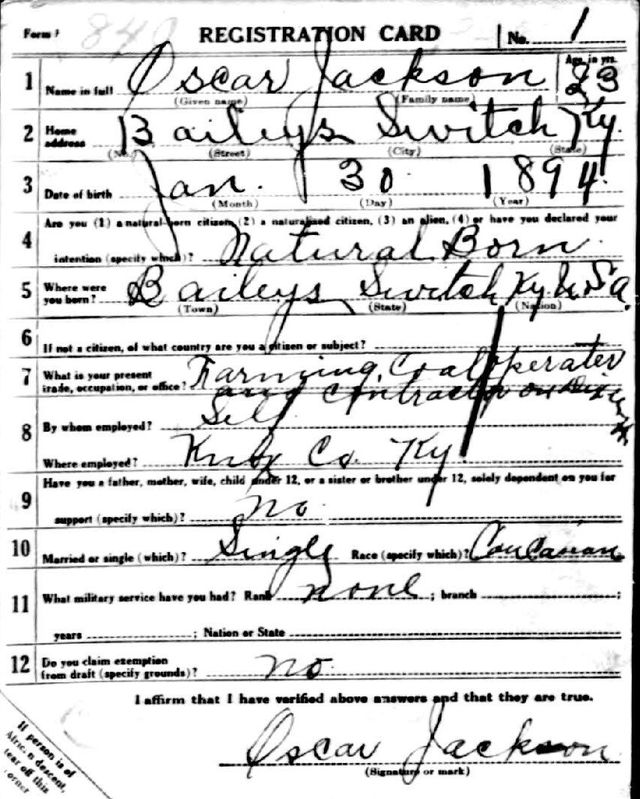 Form 1 840 REGISTRATION CARD No. 1
1 Name in full Oscar Jackson Age, in yrs. 23
(Given name) (Family name)
2 Home address Baileys Switch Ky.
(No.) (Street) (City) (State)
3 Date of birth Jan. 30 1894.
(Month) (Day) (Year)
4 Are you (1) a natural-born citizen, (2) a naturalized citizen, (3) an alien, (4) or have you declared your
intention (specify which)? Natural Born
5 Where were you born? Baileys Switch Ky
(Town) (State) (Nation)
6 If not a citizen, of what country are you a citizen or subject?
7 What is your present trade, occupation, or office? Farming, Coal operater
and Contractor on
8 By whom employed? Self
Where employed? Knox Co. Ky.
9 Have you a father, mother, wife, child under 12, or a sister or brother under 12, solely dependent on you for
support (specify which)? No
10 Married or single (which)? Single Race (specify which)? Caucasian
11 What military service have you had? Rank none ; branch
years ; Nation or State
12 Do you claim exemption from draft (specify grounds)? no
I affirm that I have verified above answers and that they are true.
Oscar Jackson
(Signature or mark)
If person is of
African descent,
tear off this
corner